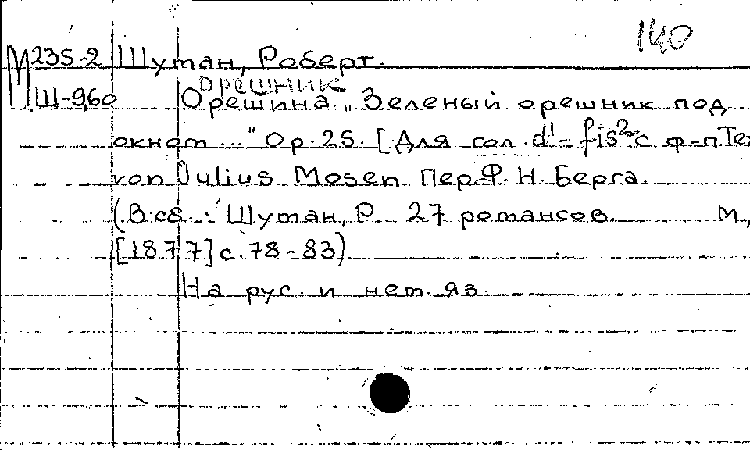 140
М 235-2 Шуман, Роберт.
Орешник
Ш-960 Орешина "Зеленый орешник под
окном ..." Op. 25. [Для сол. d¹-fis² с ф-п. Текст
von Julius Mosen Пер. Ф. Н. Берга.
(В сб.: Шуман, Р. 27 романсов. М.,
[1877] с. 78-83)
На рус. и нем. яз.